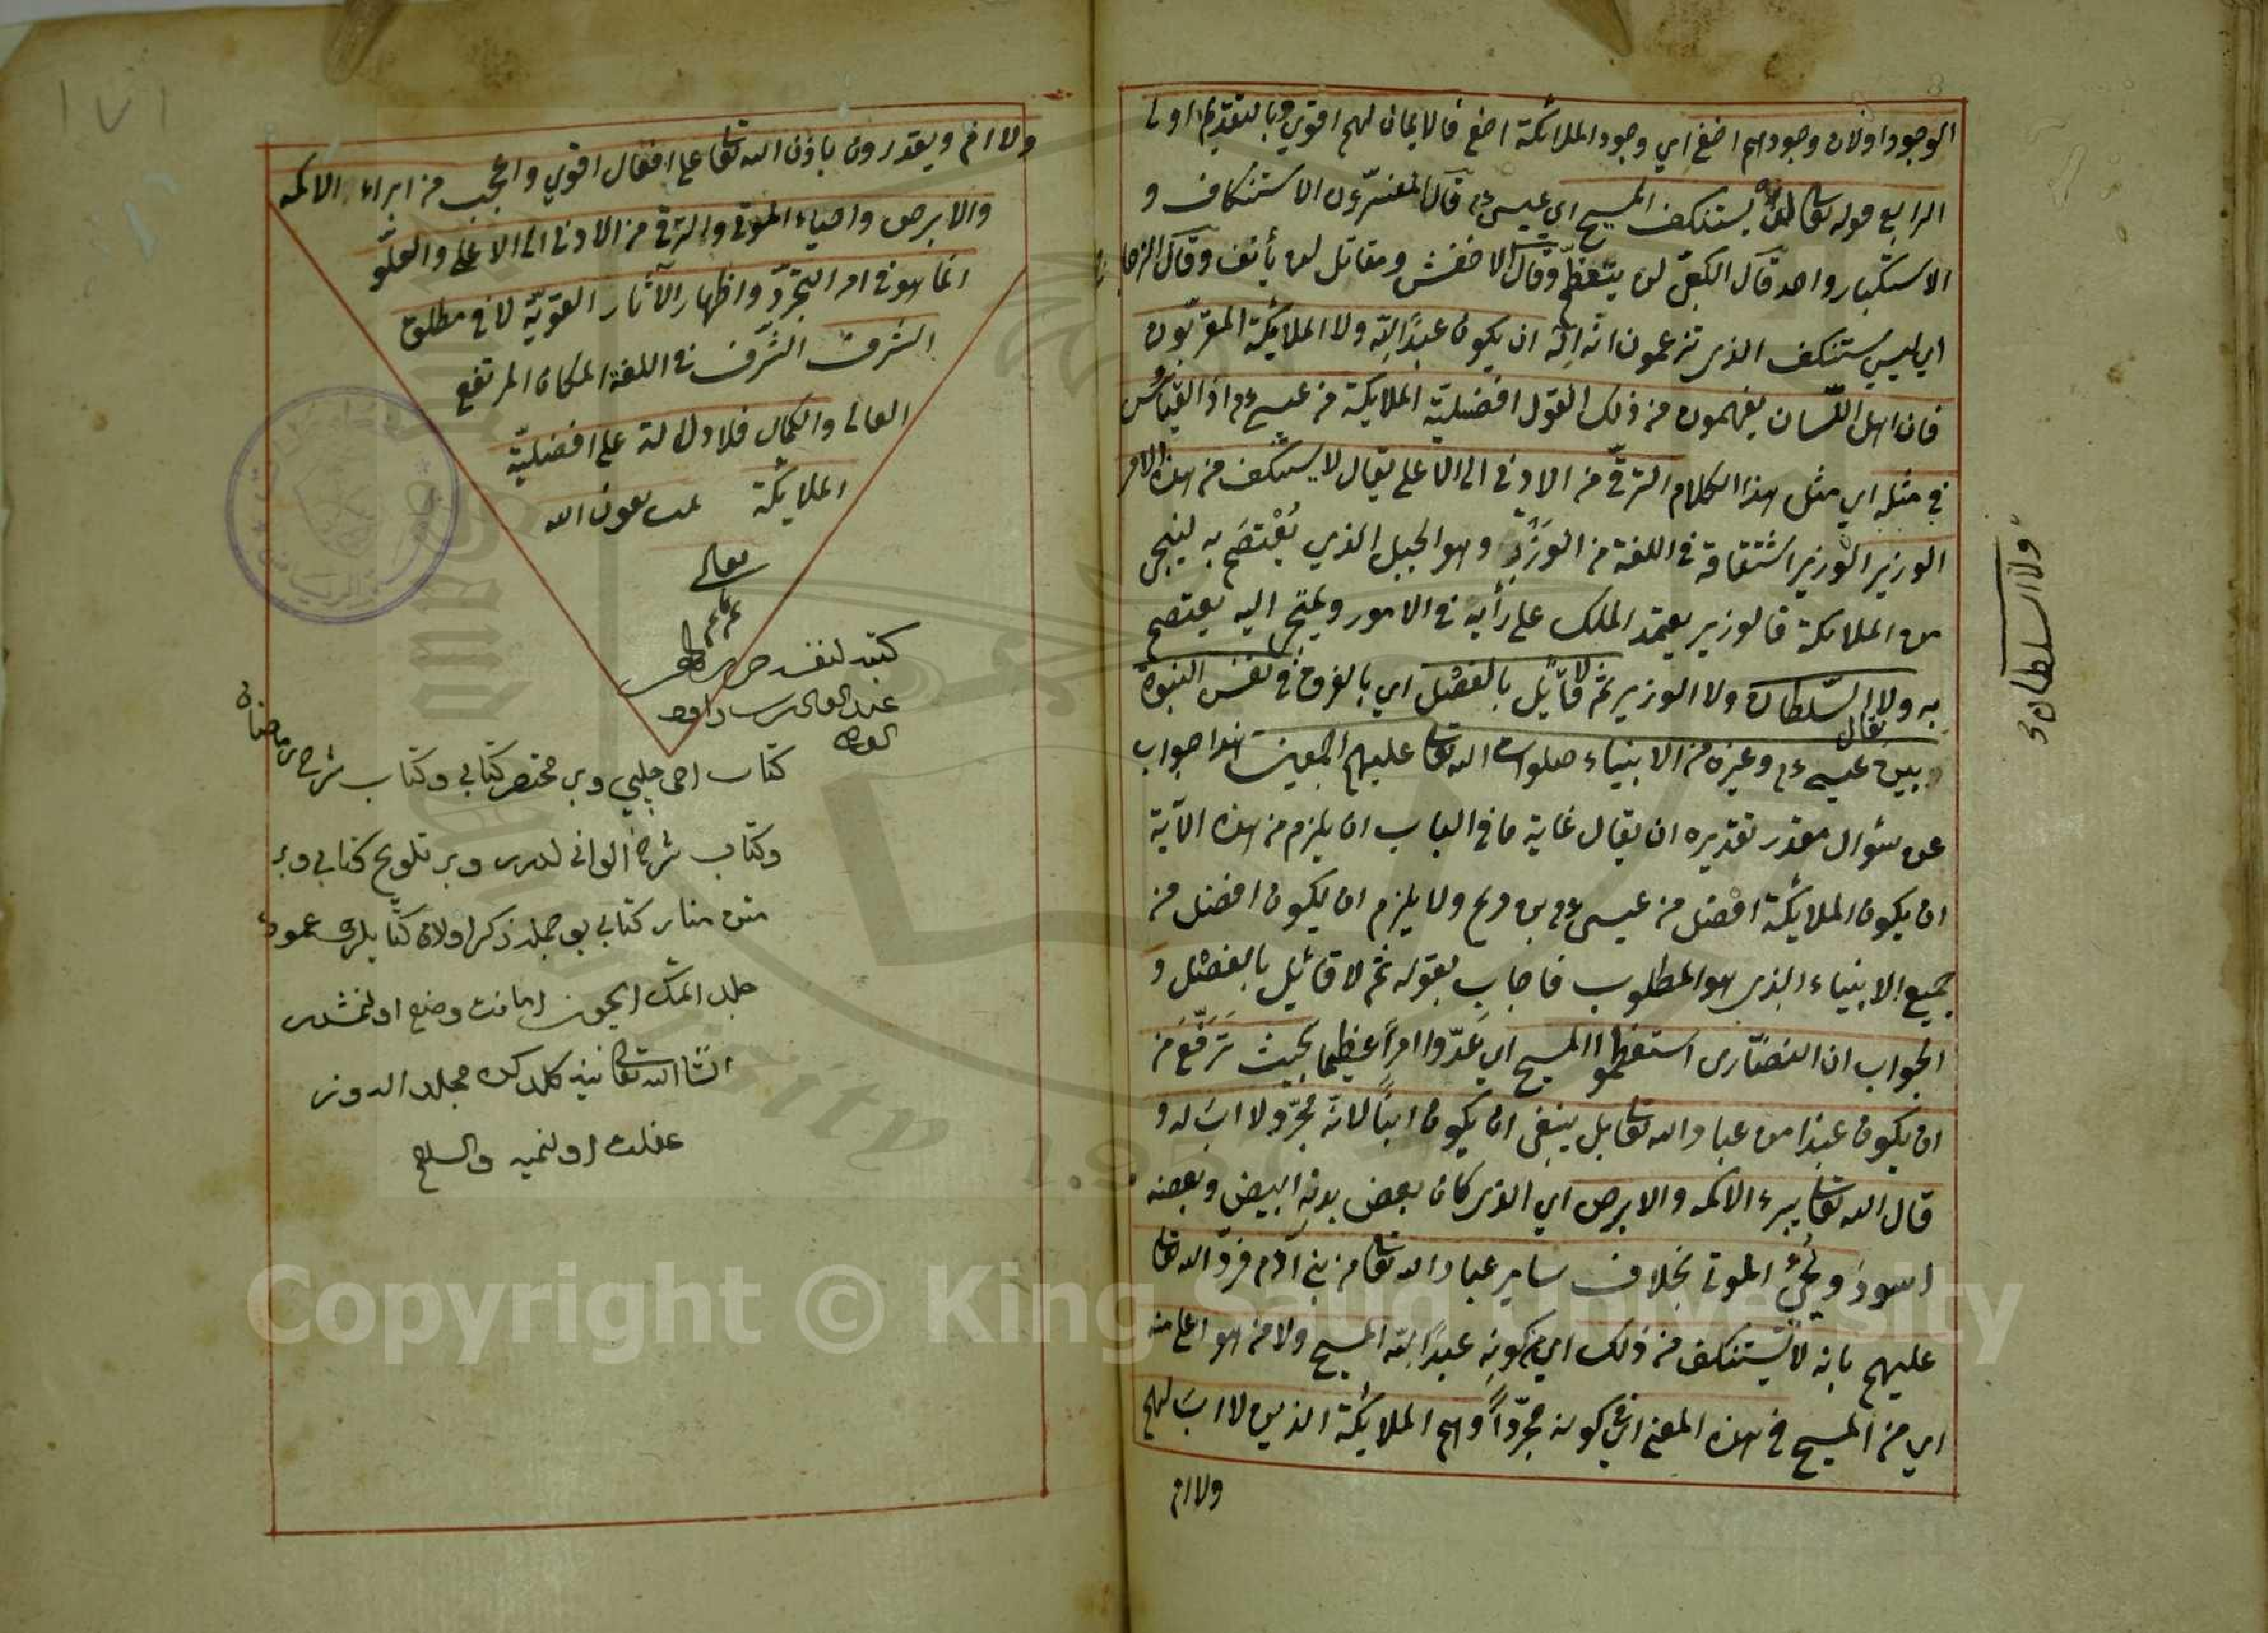 الوجود اولان وجودهم اخفى اي وجود الملائكة اخفى فالايمان لهم اقوي وبالتقديم اولى
الرابع قوله تعالى لن يستنكف المسيح اي عيسى عم قال المفسرون الاستنكاف و
الاستكبار واحد قال الكلبي لن يتعظم وقال الاخفش ومقاتل لن يأنف وقال الزجاج
اي ليس يستنكف الذي تزعمون انه اله ان يكون عبدًا لله ولا الملائكة المقربون
فان اهل اللسان يفهمون من ذلك القول افضلية الملائكة من عيسى عم اذ القياس
في مثله اي مثل هذا الكلام الترقي من الادنى الى الاعلى يقال لا يستنكف من هذا الامر
الوزير الوزير اشتقاقه في اللغة من الوَزَرِ وهو الجبل الذي يُعْتَصَم به لينجى
من الملائكة فالوزير يعتمد الملك على رأيه في الامور ويلتجئ اليه يعتصم
به ولا السلطان يقال ولا الوزير ثم لا قائل بالفصل اي بالفرق في نفس النبوة
بين عيسى عم وغيره من الانبياء صلوات الله تعالى عليهم اجمعين هذا جواب
عن سؤال مقدر تقديره ان يقال غاية ما في الباب ان يلزم من هذه الآية
ان يكون الملائكة افضل من عيسى عم بن مريم ولا يلزم ان يكون افضل من
جميع الانبياء الذي هو المطلوب فاجاب بقوله ثم لا قائل بالفصل و
الجواب ان النصارى استعظموا المسيح اي عدّوا امرًا عظيما بحيث ترفّع من
ان يكون عبدا من عباد الله تعالى بل ينبغي ان يكون ابنًا لانه مجرّد لا اب له و
قال الله تعالى يبرء الاكمه والابرص اي الذي كان بعض بدنه ابيض وبعضه
اسود ويحيي الموتى بخلاف ساير عباد الله تعالى من بني آدم فردّ الله تعالى
عليهم بانه لا يستنكف من ذلك اي من كونه عبدًا لله المسيح ولا من هو اعلى منه
اي من المسيح في هذه المعنى اي في كونه مجرّدًا وهم الملائكة الذين لا اب لهم
ولا ام
ولا السلطان
ولا ام ويقدرون باذن الله تعالى على افعال اقوي واعجب من ابراء الاكمه
والابرص واحياء الموتى والترقي من الادنى الى الاعلى والعلو
انما هو في امر التجرد واظهار الآثار القويّة لا في مطلق
الشرف الشّرف في اللغة المكان المرتفع
العالى والكمال فلا دلالة على افضليّة
الملائكة تمت بعون الله
تعالى
كتبه لنفسه
كتاب اخى چلبي وبر مختصر كتابي وكتاب شرح رمضان
وكتاب شرح الوانى وبر تلويح كتابي وبر
متن منار كتابي بو جمله ذكر اولان كتابلرى
جلد اتمك ايچون امانت وضع اولنمشدر
انشاالله تعالى
غفلت اولنميه والسلام
١٧١